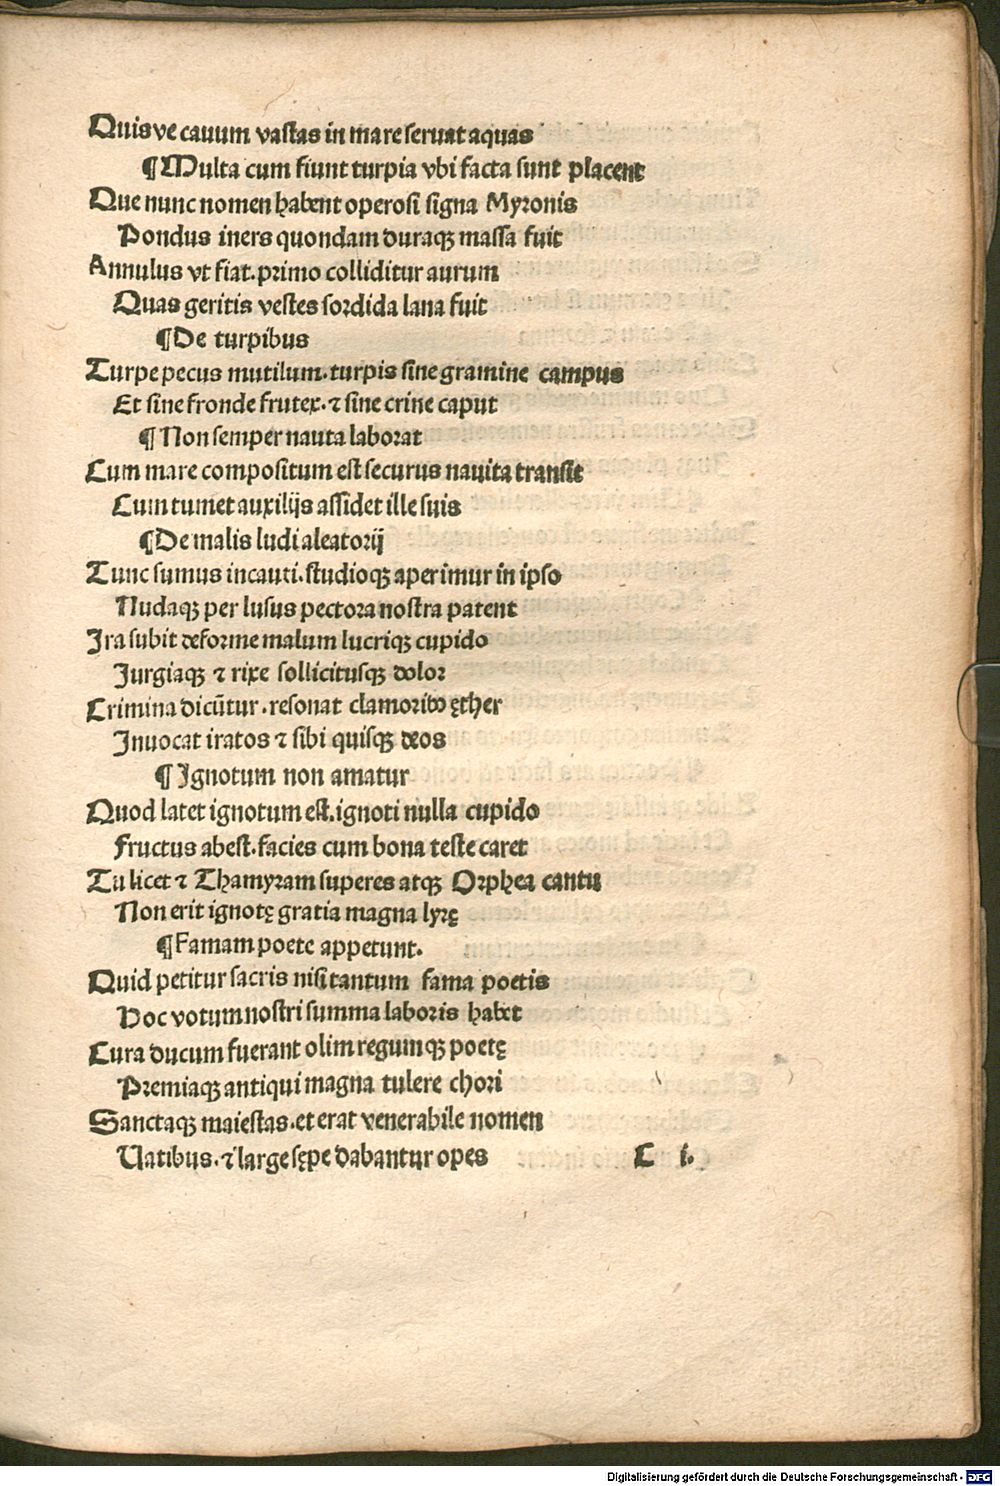 Quisve cauum vastas in mare seruat aquas
¶ Multa cum fiunt turpia vbi facta sunt placent
Que nunc nomen habent operosi signa Myronis
Pondus iners quondam duraqꝫ massa fuit
Annulus vt fiat. primo colliditur aurum
Quas geritis vestes sordida lana fuit
¶ De turpibus
Turpe pecus mutilum. turpis sine gramine campus
Et sine fronde frutex. ⁊ sine crine caput
¶ Non semper nauta laborat
Cum mare compositum est securus nauita transit
Cum tumet auxilijs assidet ille suis
¶ De malis ludi aleatorij
Tunc sumus incauti. studioqꝫ aperimur in ipso
Nudaqꝫ per lusus pectora nostra patent
Ira subit deforme malum lucriqꝫ cupido
Jurgiaqꝫ ⁊ rixe sollicitusqꝫ dolor
Crimina dicūtur. resonat clamoribꝰ ęther
Inuocat iratos ⁊ sibi quisqꝫ deos
¶ Ignotum non amatur
Quod latet ignotum est. ignoti nulla cupido
Fructus abest. facies cum bona teste caret
Tu licet ⁊ Thamyram superes atqꝫ Orphea cantu
Non erit ignotę gratia magna lyrę
¶ Famam poete appetunt.
Quid petitur sacris nisi tantum fama poetis
Hoc votum nostri summa laboris habet
Cura ducum fuerant olim regumqꝫ poetę
Premiaqꝫ antiqui magna tulere chori
Sanctaqꝫ maiestas. et erat venerabile nomen
Uatibus. ⁊ large sępe dabantur opes C i.
Digitalisierung gefördert durch die Deutsche Forschungsgemeinschaft - DFG